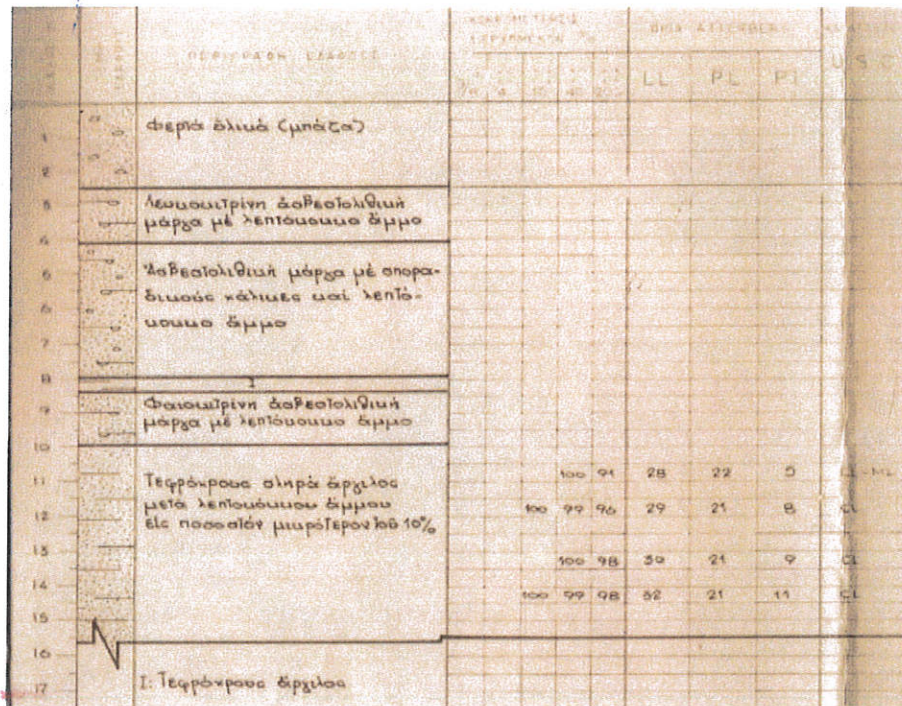 ΠΕΡΙΓΡΑΦΗ ΕΔΑΦΟΥΣ
ΟΡΙΑ ATTERBERG
LL PL PI
U S C
Φερτά ὑλικά (μπάζα)
Λευκοκιτρίνη ἀσβεστολιθική
μάργα μέ λεπτόκοκκο ἄμμο
Ἀσβεστολιθική μάργα μέ σπορα-
δικούς χάλικες καί λεπτό-
κοκκο ἄμμο
Φαιοκιτρίνη ἀσβεστολιθική
μάργα μέ λεπτόκοκκο ἄμμο
Τεφρόχρους σκληρά ἄργιλος
μετά λεπτοκόκκου ἄμμου
εἰς ποσοστόν μικρότερον τοῦ 10%
100 91 28 22
100 99 96 29 21 8 CL
100 98 30 21 9 CL
100 99 98 32 21 11 CL
I: Τεφρόχρους ἄργιλος
6
7
8
9
10
11
12
13
14
15
16
17